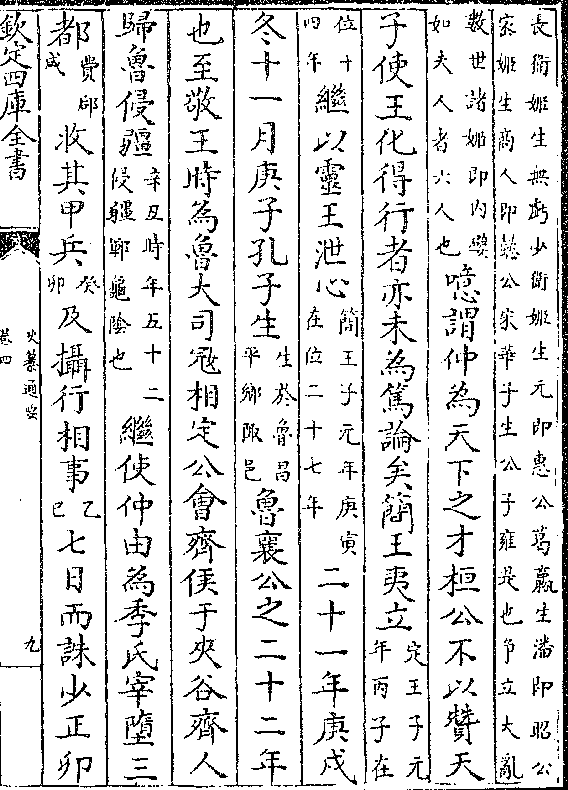 長衛姬生無虧少衛姬生元即惠公葛嬴生潘即昭公
家姬生商人即懿公宋華子生公子雍是也爭立大亂
數世諸姬即内嬖
如夫人者六人也
噫謂仲為天下之才桓公不以贊天
子使王化得行者亦未為篤論矣簡王夷立
定王子元
年丙子在
位十
四年
繼以靈王泄心
簡王子元年庚寅
在位二十七年
二十一年庚戌
冬十一月庚子孔子生
生於魯昌
平鄉陬邑
魯襄公之二十二年
也至敬王時為魯大司冦相定公會齊侯于夾谷齊人
歸魯侵疆
辛丑時年五十二
侵疆鄆龜陰也
繼使仲由為季氏宰墮三
都
費郈
成
收其甲兵
癸
卯
及攝行相事
乙
巳
七日而誅少正卯
欽定四庫全書
史纂通要
卷四
九